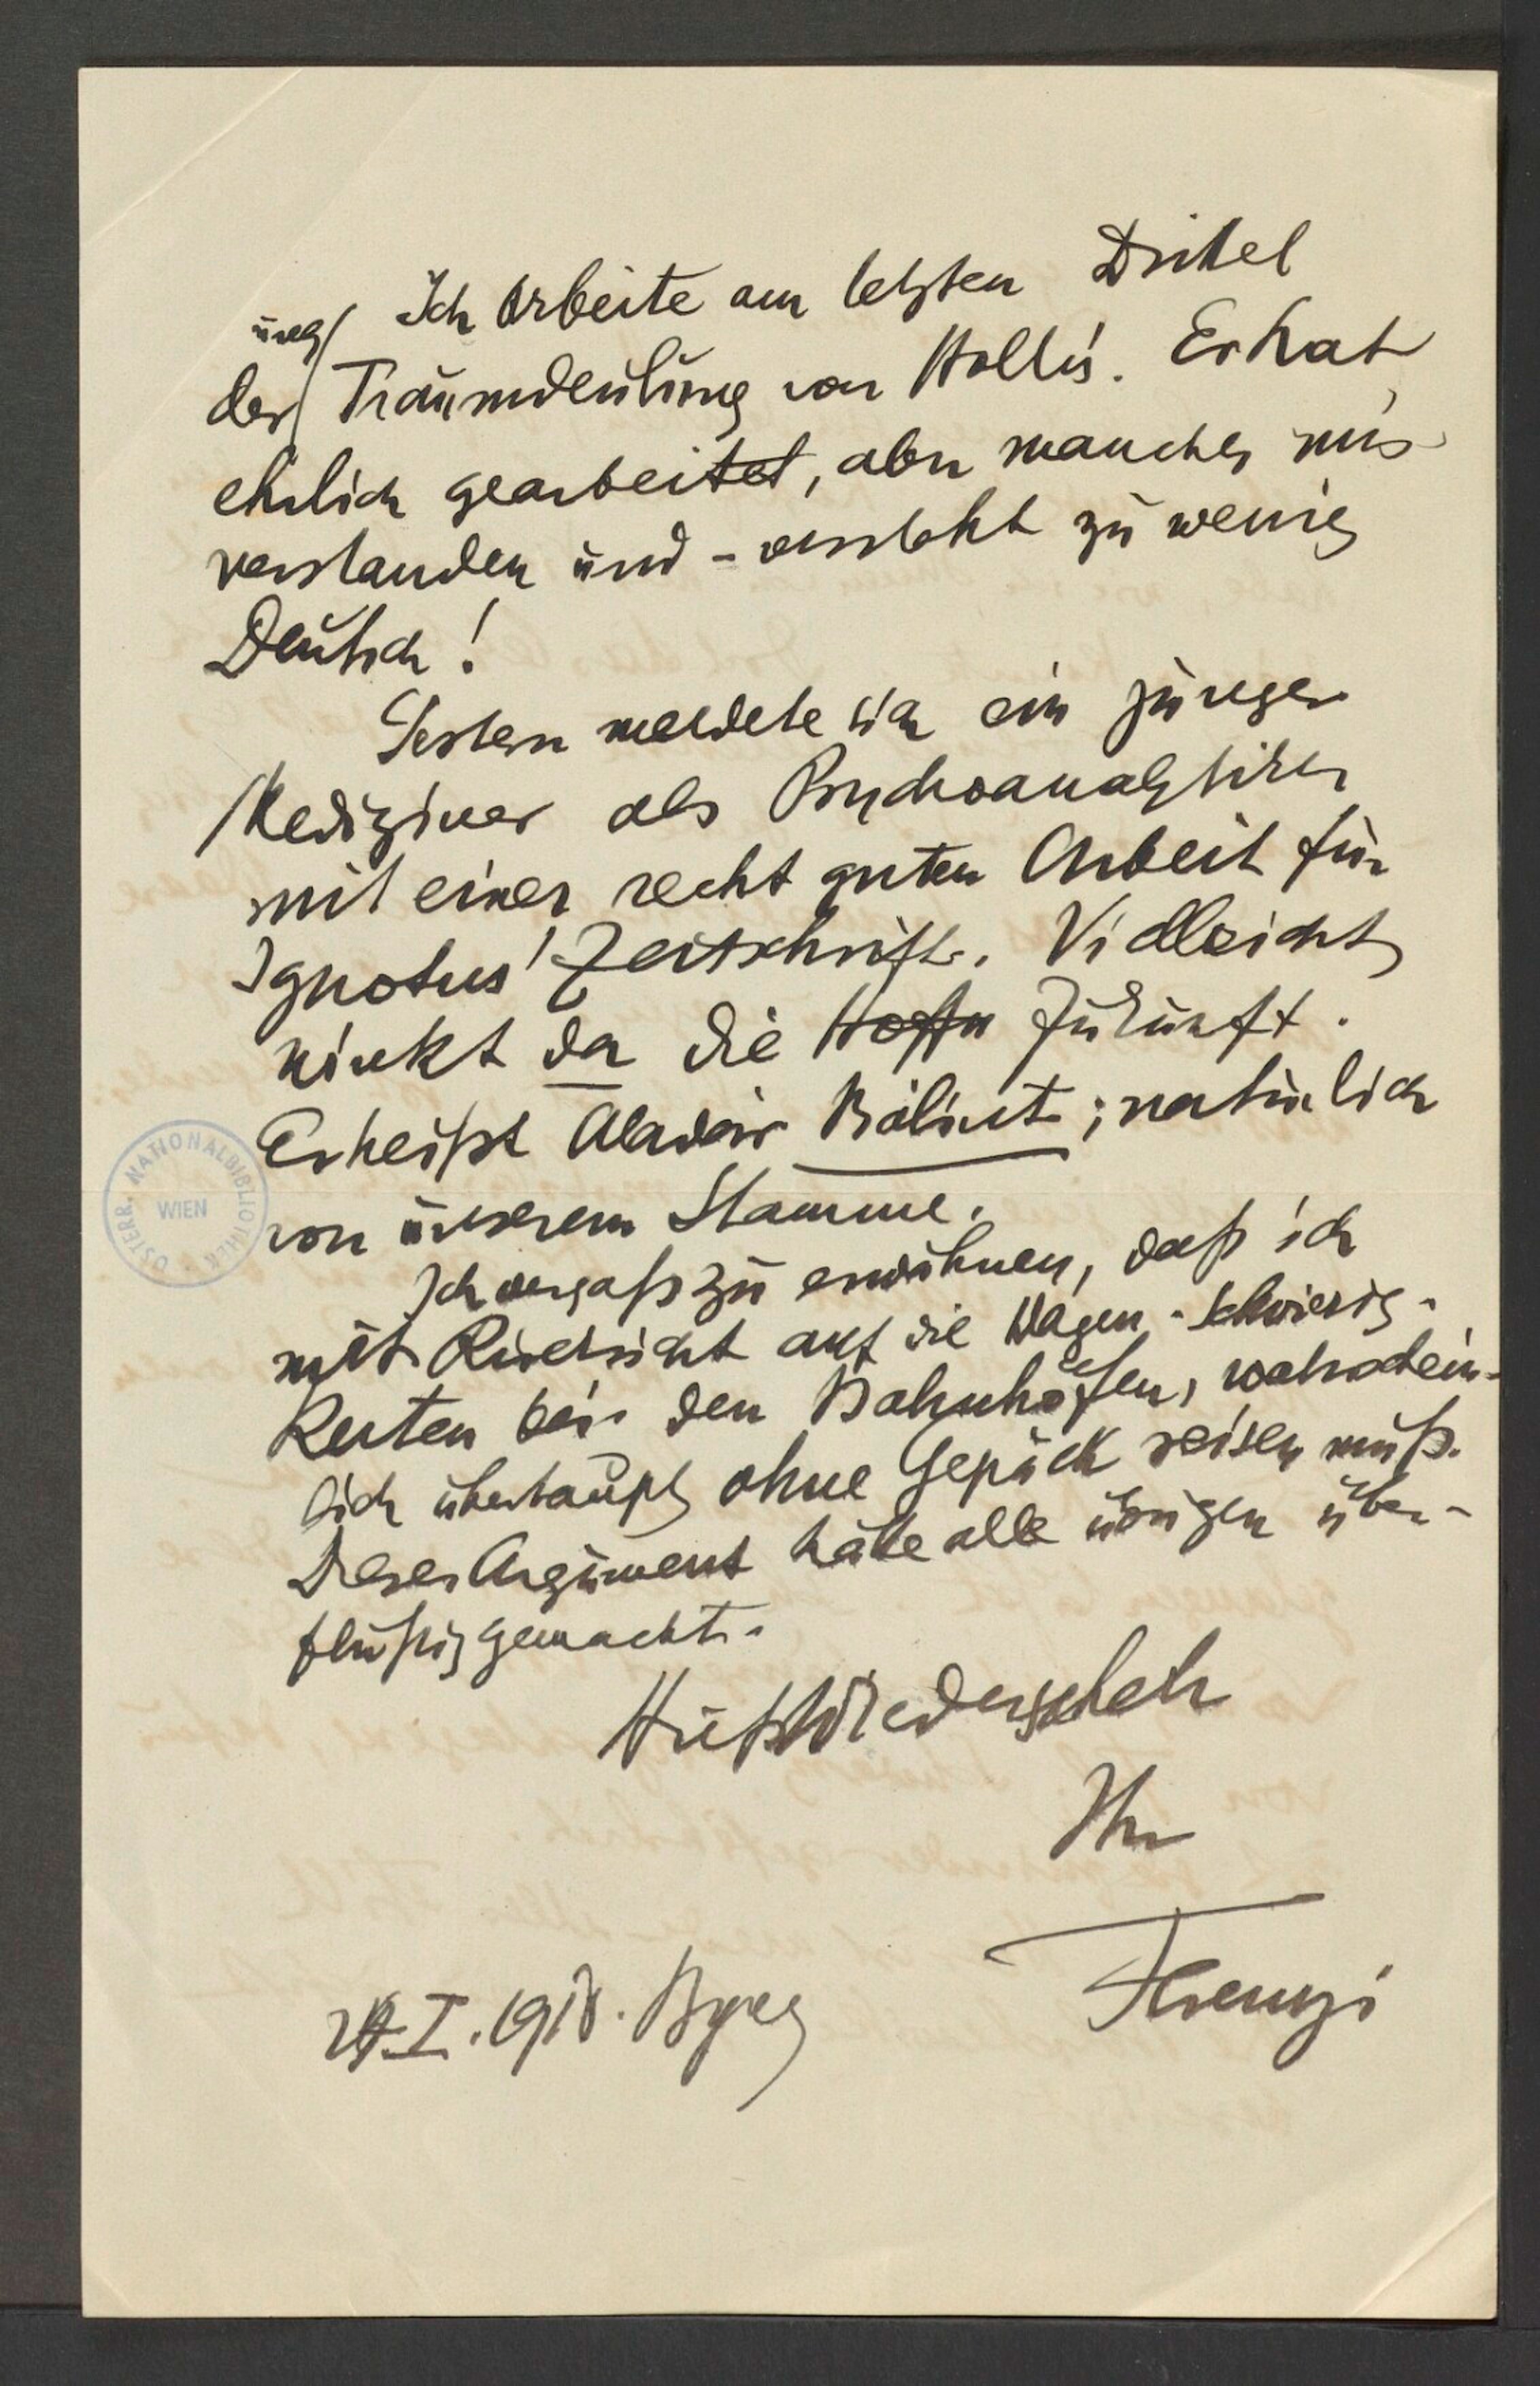 Ich arbeite am letzten Drittel
ung.
der Traumdeutung von Hollós. Er hat
ehrlich gearbeitet, aber manches mis-
verstanden und - versteht zu wenig
Deutsch!
Gestern meldete sich ein junger
Mediziner als Psychoanalytiker
mit einer recht guten Arbeit für
Ignotus' Zeitschrift. Vielleicht
winkt da die Hoffn Zukunft.
Er heißt Aladár Bálint; natürlich
von unserem Stamme.
Ich vergaß zu erwähnen, daß ich
mit Rücksicht auf die Wagen-Schwierig-
keiten bei den Bahnhöfen, wahrschein-
lich überhaupt ohne Gepäck reisen muß.
Dieses Argument hätte alle übrigen über-
flüßig gemacht.
Auf Wiedersehen
Ihr
Ferenczi
I. 1918. Bpest
ÖSTERR. NATIONALBIBLIOTHEK
WIEN